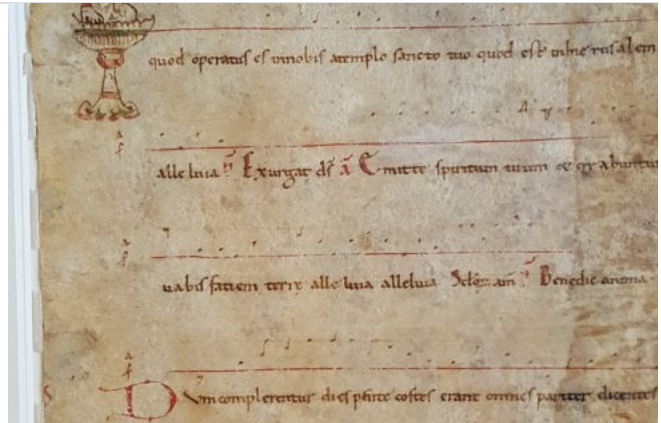 quod operatus es innobis atemplo sancto tuo quod est inhierusalem
alleluia Exurgat ds̄ ā Emitte spiritum tuum et creabuntur
uabis faciem terre alleluia alleluia Sclōꝝ am̄ Benedic anima
Dum complerentur dies pente costes erant omnes pariter dicentes